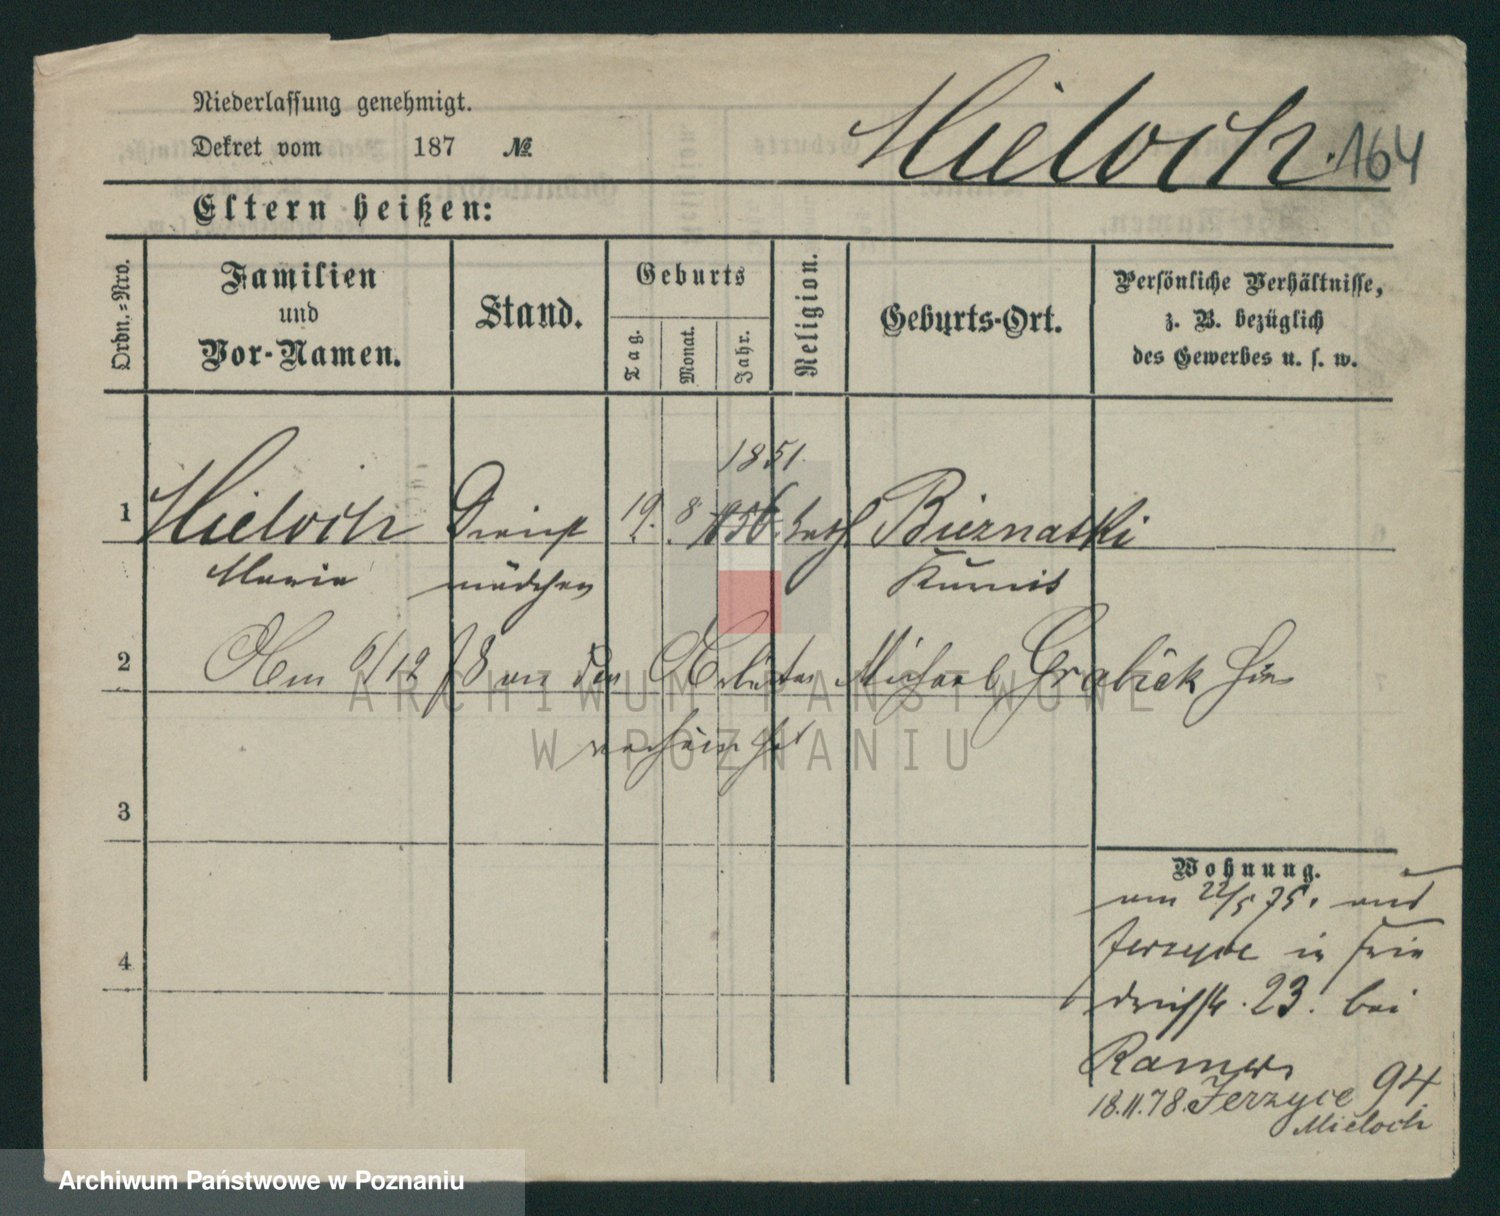 Niederlassung genehmigt.
Mieloch. 164
Dekret vom 187 №
Eltern heißen:
Ordn.-Nro.
Familien
und
Vor-Namen.
Stand.
Geburts
Tag.
Monat.
Jahr.
Religion.
Geburts-Ort.
Persönliche Verhältnisse,
z. B. bezüglich
des Gewerbes u. s. w.
1851.
1 Mieloch Dienst 19. 8 1856. kath Bieznatki
Maria mädchen Kurnik
2 Am 6/12 78 an den Arbeiter Michael Grabick hier
verheirathet
3
Wohnung.
am 22/5 75. aus
Jerzyce in Frie
4
drichstr. 23. bei
18.11.78. Jerzyce 94
Mieloch
ARCHIWUM PAŃSTWOWE
W POZNANIU
Archiwum Państwowe w Poznaniu